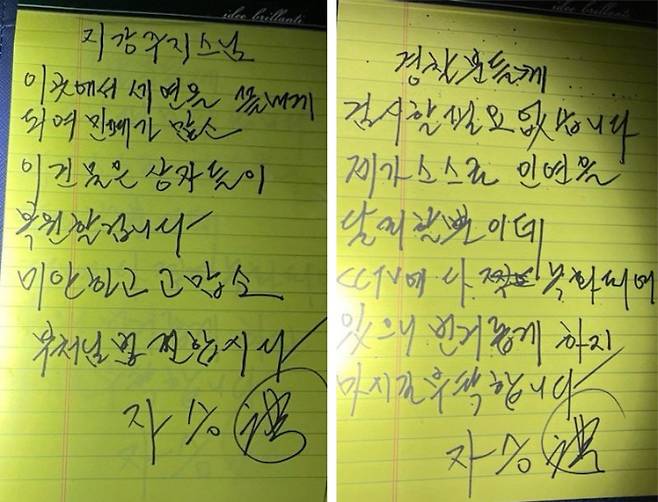 idee brillanti
지강주지스님
이곳에서 세연을 끝내게
되어 민폐가 많소
이 건물은 상자들이
복원할겁니다
미안하고 고맙소
부처님법 전합시다
자승
idee brillanti
경찰분들께
검시할 필요 없습니다
제가 스스로 인연을
달리할 뿐이데
CCTV에 다 녹화되어
있으니 번거롭게 하지
마시길 부탁합니다
자승